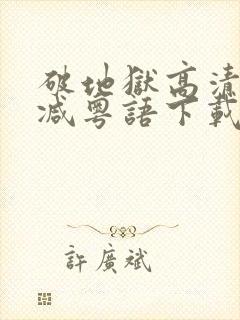 破地獄高清
減粵語下載
許廣斌